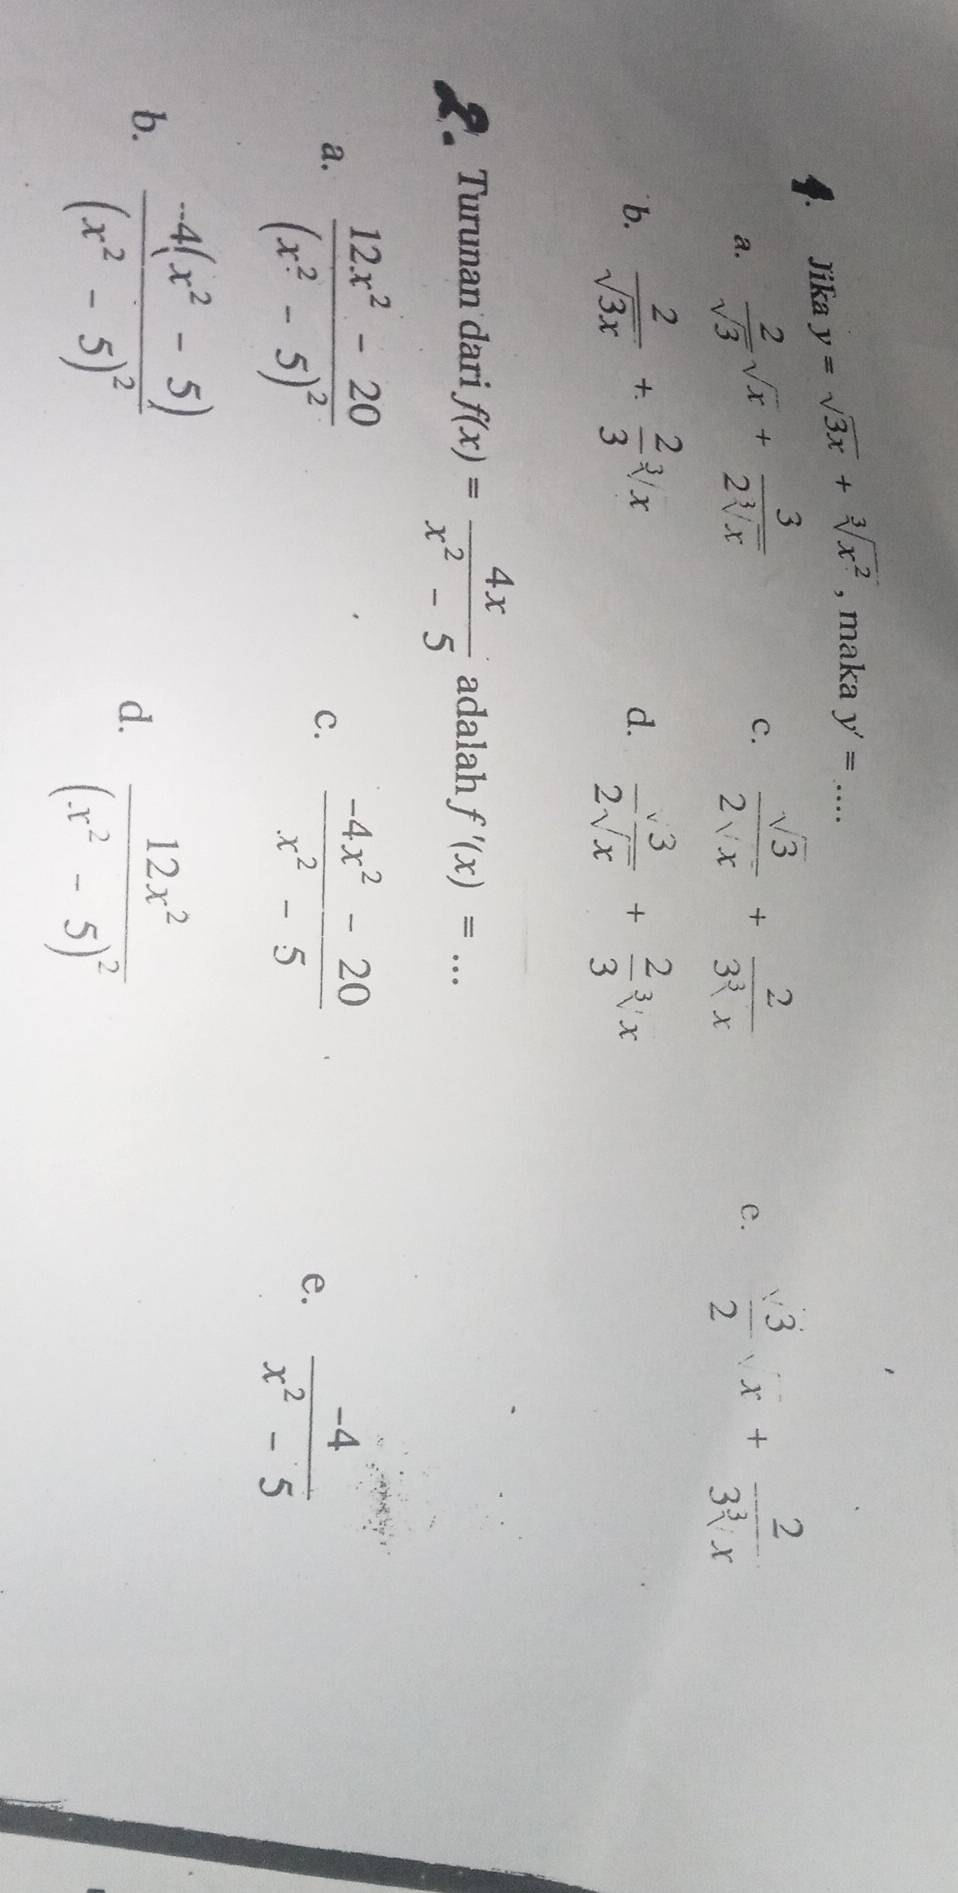 1. Jika y = √3x + ∛x², maka y' = ....
a. 2/√3 √x + 3/(2∛x)
c. √3/(2√x) + 2/(3∛x)
e. √3/2 √x + 2/(3∛x)
b. 2/√3x + 2/3 ∛x
d. √3/(2√x) + 2/3 ∛x
2. Turunan dari f(x) = 4x/(x² - 5) adalah f'(x) = ...
a. (12x² - 20)/(x² - 5)²
c. (-4x² - 20)/(x² - 5)
e. -4/(x² - 5)
b. -4(x² - 5)/(x² - 5)²
d. 12x²/(x² - 5)²